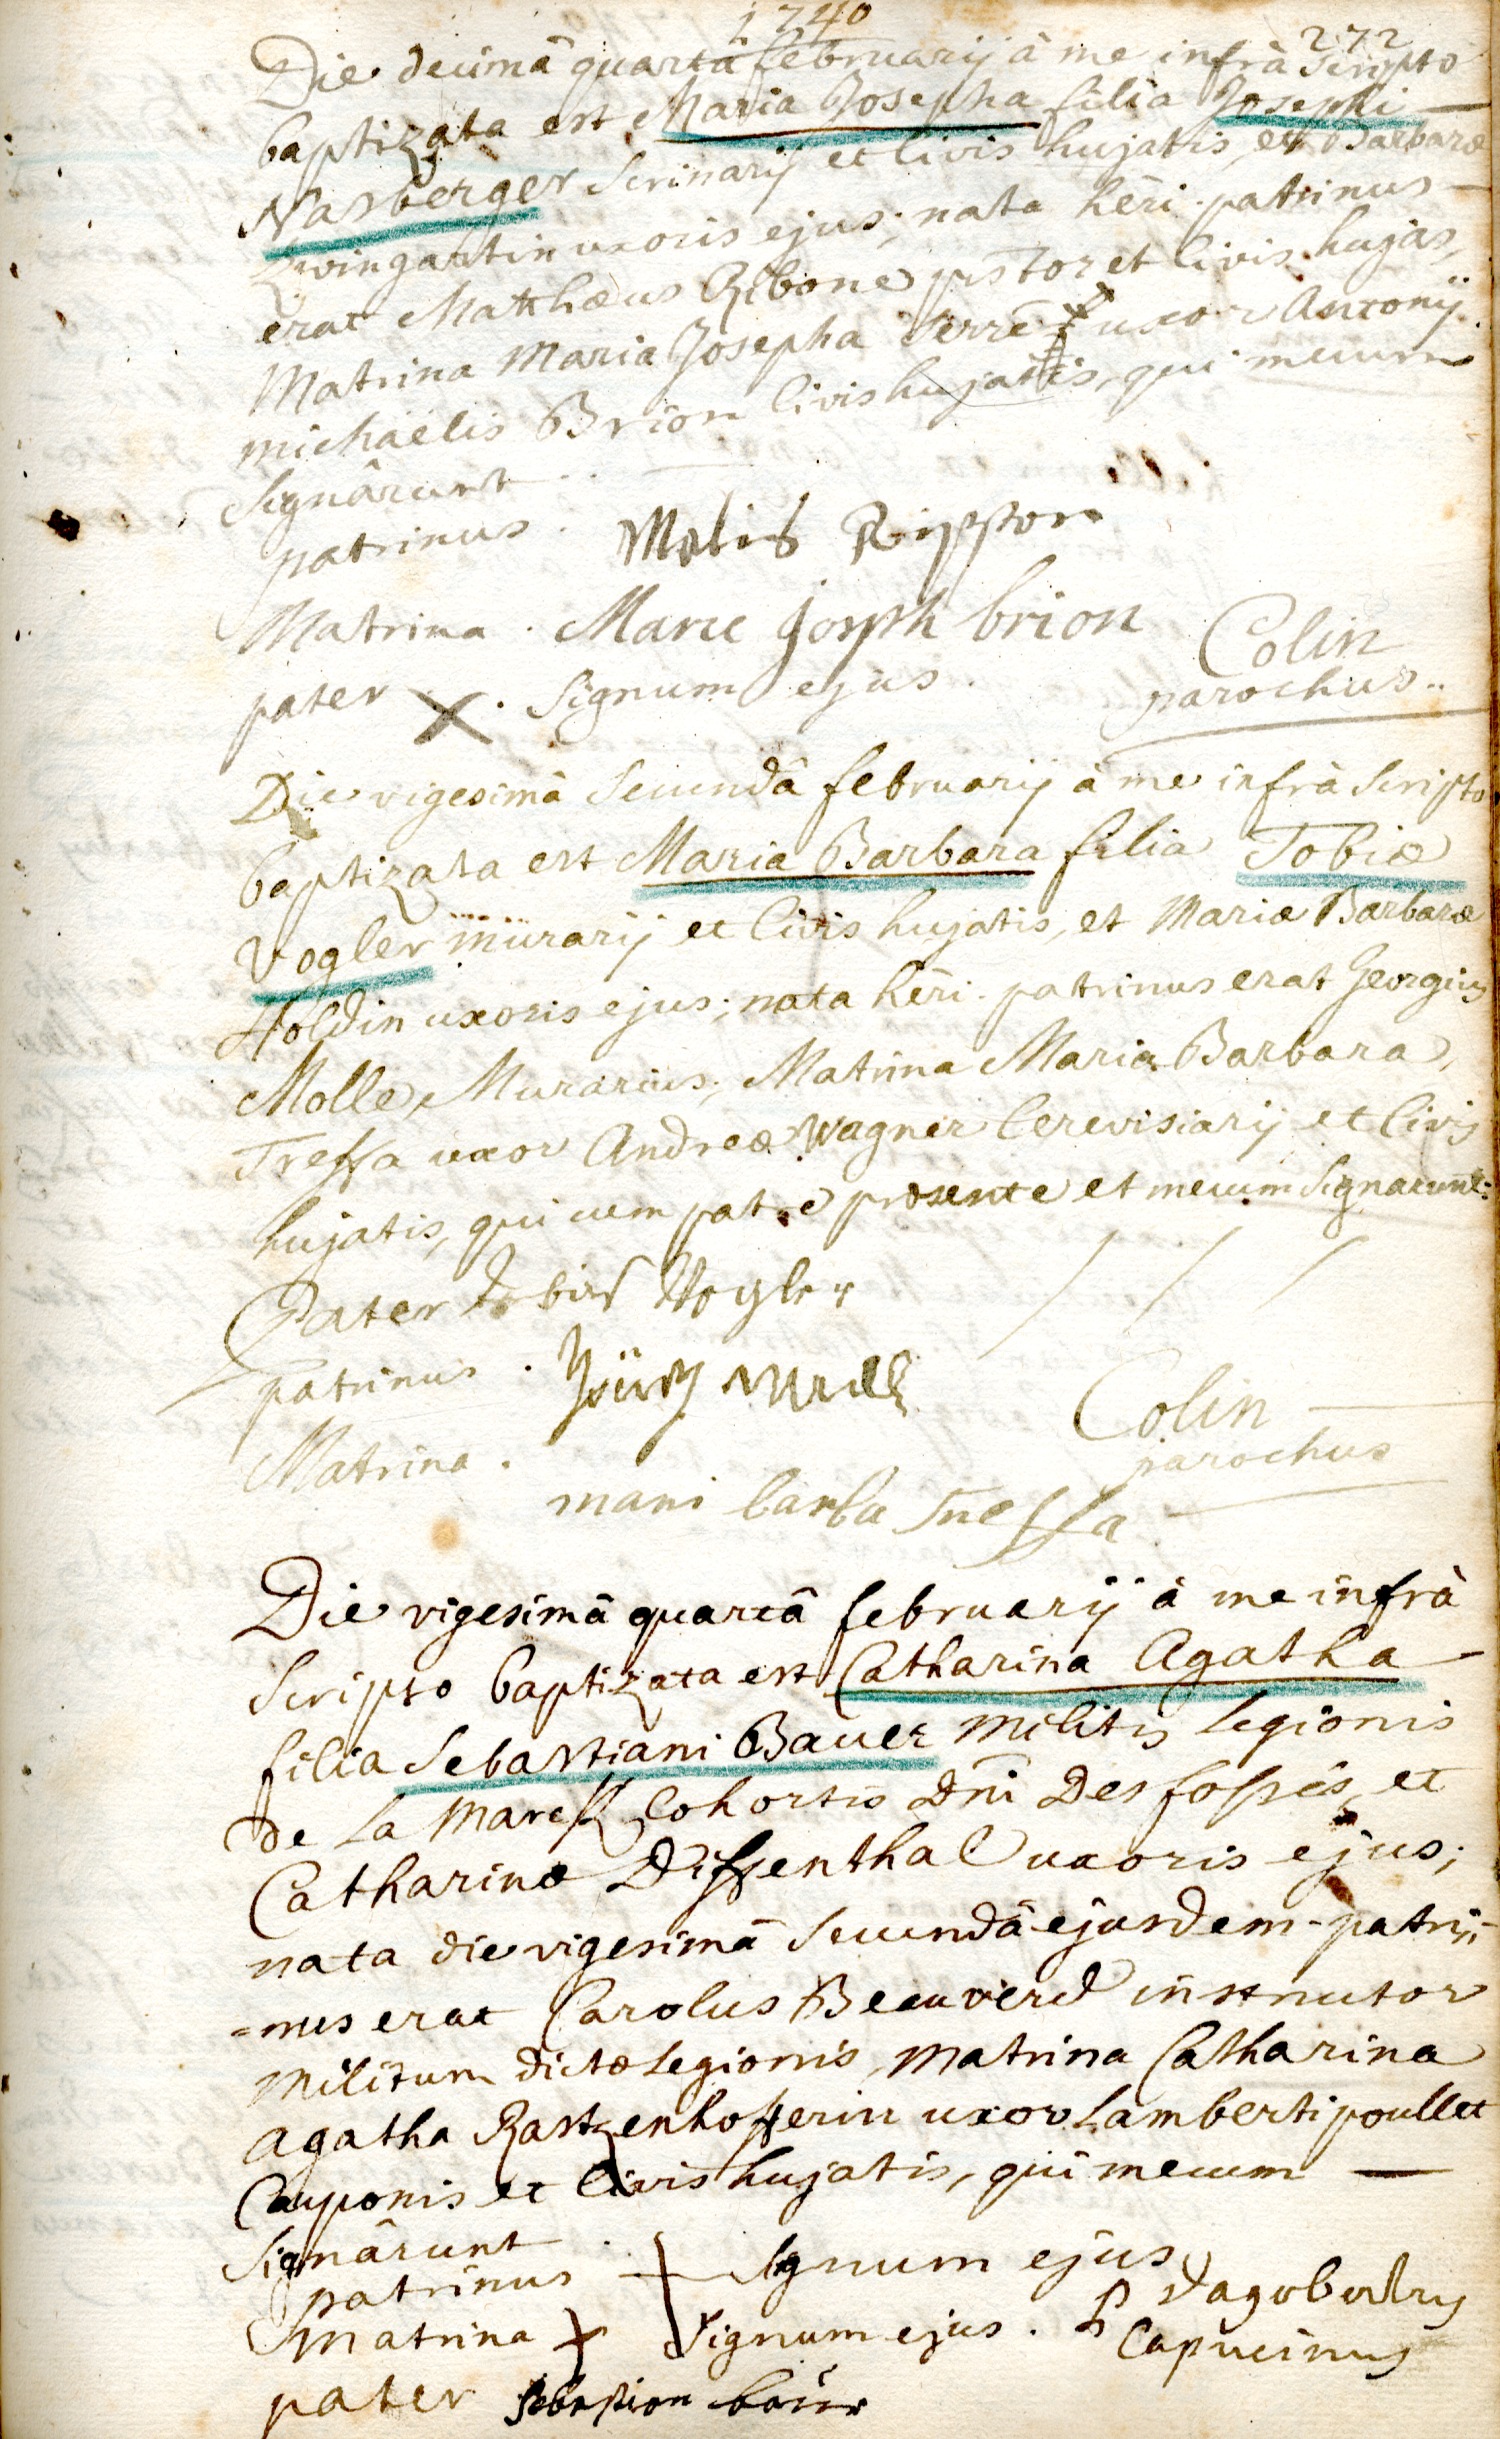 1740
272
Die decimâ quartâ februarij â me infrà scripto
baptizata est Maria Josepha filia Josephi
Nasberger Scrinarij et Civis hujatis, et Barbaræ
Zwingartin uxoris ejus; nata hèri. patrinus
erat Matthæus Ribone pistor et Civis hujas,
Matrina Maria Josepha uxor Antonij
michaëlis Brion Civis hujatis, qui mecum
Signârunt
patrinus. Rippon
Matrina. Marie Joseph brion
Colin
pater X. Signum ejus.
parochus..
Die vigesimâ Secundâ februarij à me infrà Scripto
baptizata est Maria Barbara filia Tobiæ
Vogler murarij et Civis hujatis, et Mariæ Barbaræ
Holdin uxoris ejus; nata hèri. patrinus erat Georgius
Molle, Murarius; Matrina Maria Barbara,
Treffa uxor Andreæ Wagner Cerevisiarij et Civis
hujatis, qui cum patre præsente et mecum Signarunt.
Pater Tobias Vogler
patrinus.
Colin
Matrina.
parochus
mari barba Treffa
Die vigesimâ quartâ februarij à me infrà
Scripto baptizata est Catharina Agatha
filia Sebastiani Bauer Militis legionis
de La Marck Cohortis Dni Des fossés, et
Catharinæ Dissenthal uxoris ejus;
nata die vigesimâ Secundâ ejusdem - patri-
=nus erat Carolus Beauverd instructor
Militum dictæ legionis, Matrina Catharina
Agatha Rastzenhofferin uxor Lamberti poullet
Cauponis et Civis hujatis, qui mecum
Signârunt
patrinus + Signum ejus
P Dagobertus
Matrina + Signum ejus.
Capucinus
pater Sebastian